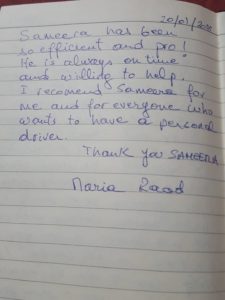 Sameera has been
so efficient and pro!
He is always on time
and willing to help.
I recomend Sameera for
me and for everyone who
wants to have a personal
driver.
Thank you SAMEERA
Maria Raad